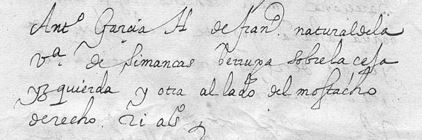 Antº Garcia H de franº. natural de la
Vª de Simancas Berruga sobre la cexa
yzquierda y otra al lado del mostacho
derecho.